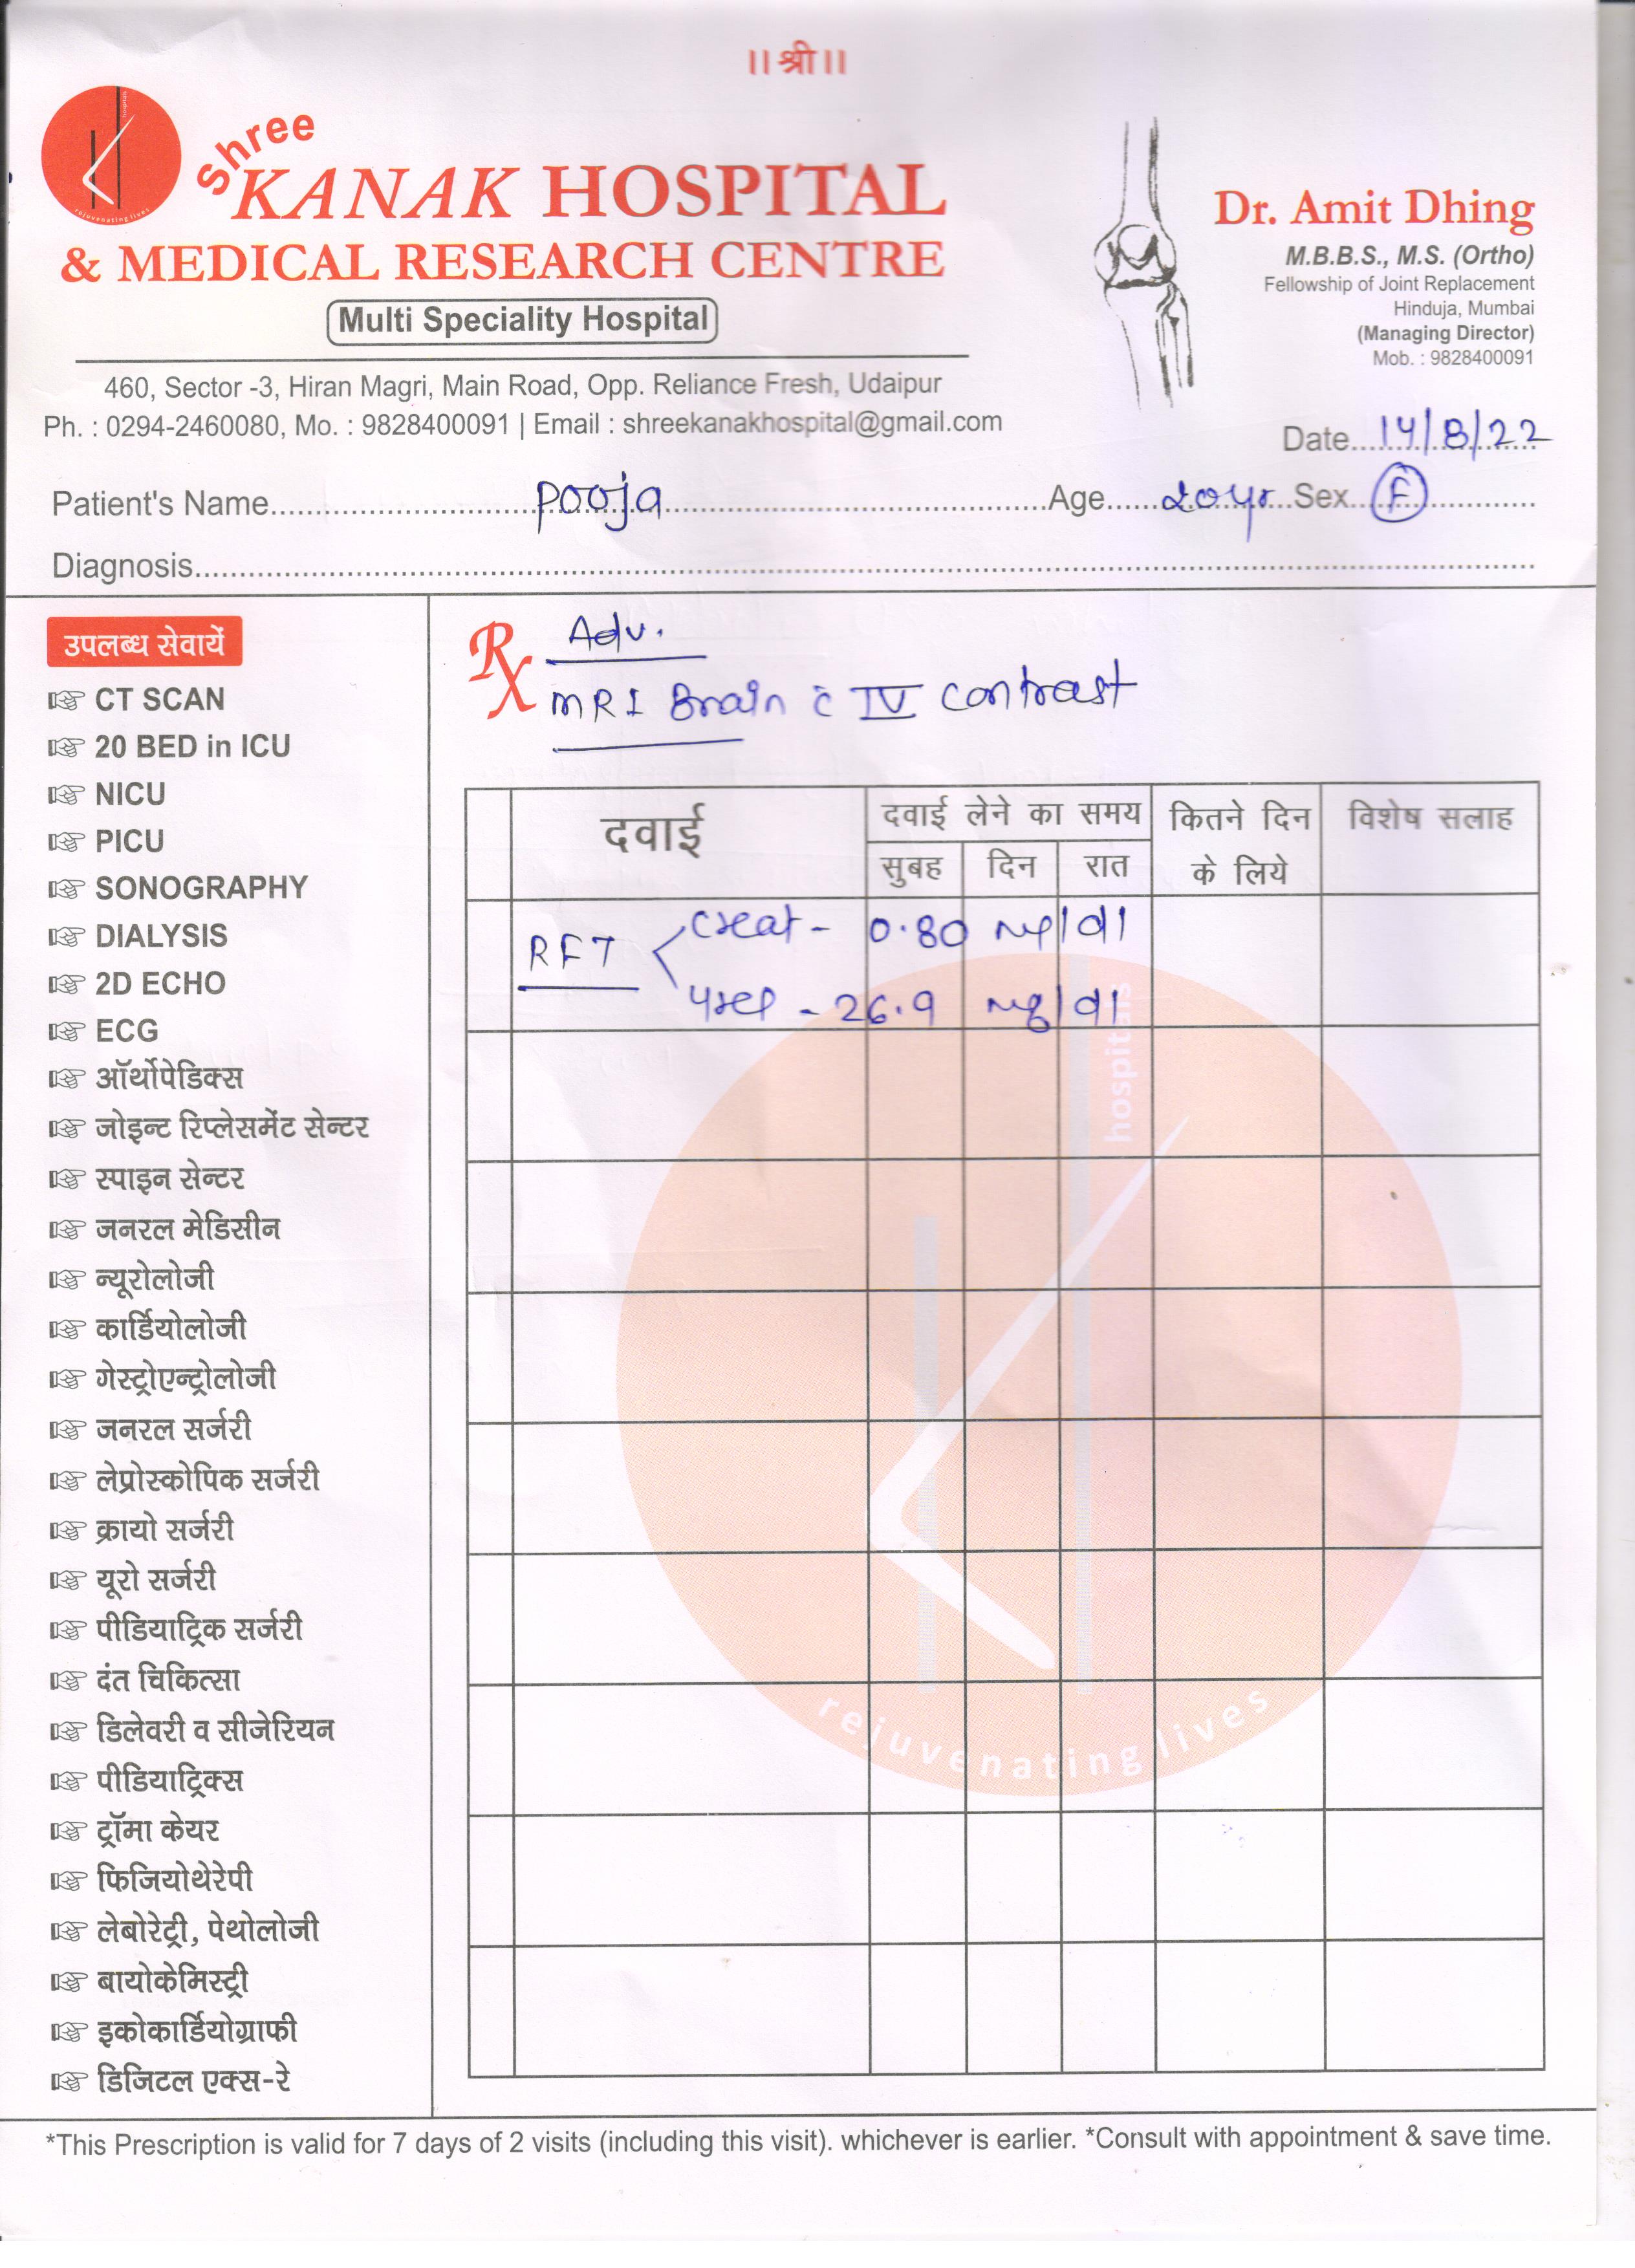 ।। श्री ।।
Shree
KANAK HOSPITAL
& MEDICAL RESEARCH CENTRE
Multi Speciality Hospital
460, Sector -3, Hiran Magri, Main Road, Opp. Reliance Fresh, Udaipur
Ph. : 0294-2460080, Mo. : 9828400091 | Email : shreekanakhospital@gmail.com
hospitals
rejuvenating lives
Dr. Amit Dhing
M.B.B.S., M.S. (Ortho)
Fellowship of Joint Replacement
Hinduja, Mumbai
(Managing Director)
Mob. : 9828400091
Date 14/8/22
Patient's Name Pooja Age 20yr Sex F
Diagnosis
उपलब्ध सेवायें
CT SCAN
20 BED in ICU
NICU
PICU
SONOGRAPHY
DIALYSIS
2D ECHO
ECG
ऑर्थोपेडिक्स
जोइन्ट रिप्लेसमेंट सेन्टर
स्पाइन सेन्टर
जनरल मेडिसीन
न्यूरोलोजी
कार्डियोलोजी
गेस्ट्रोएन्ट्रोलोजी
जनरल सर्जरी
लेप्रोस्कोपिक सर्जरी
क्रायो सर्जरी
यूरो सर्जरी
पीडियाट्रिक सर्जरी
दंत चिकित्सा
डिलेवरी व सीजेरियन
पीडियाट्रिक्स
ट्रॉमा केयर
फिजियोथेरेपी
लेबोरेट्री, पेथोलोजी
बायोकेमिस्ट्री
इकोकार्डियोग्राफी
डिजिटल एक्स-रे
Rx Adv.
MRI Brain c̄ IV contrast
दवाई दवाई लेने का समय कितने दिन के लिये विशेष सलाह
सुबह दिन रात
RFT creat - 0.80 mg/dl
- 26.9 mg/dl
hospitals
rejuvenating lives
*This Prescription is valid for 7 days of 2 visits (including this visit). whichever is earlier. *Consult with appointment & save time.